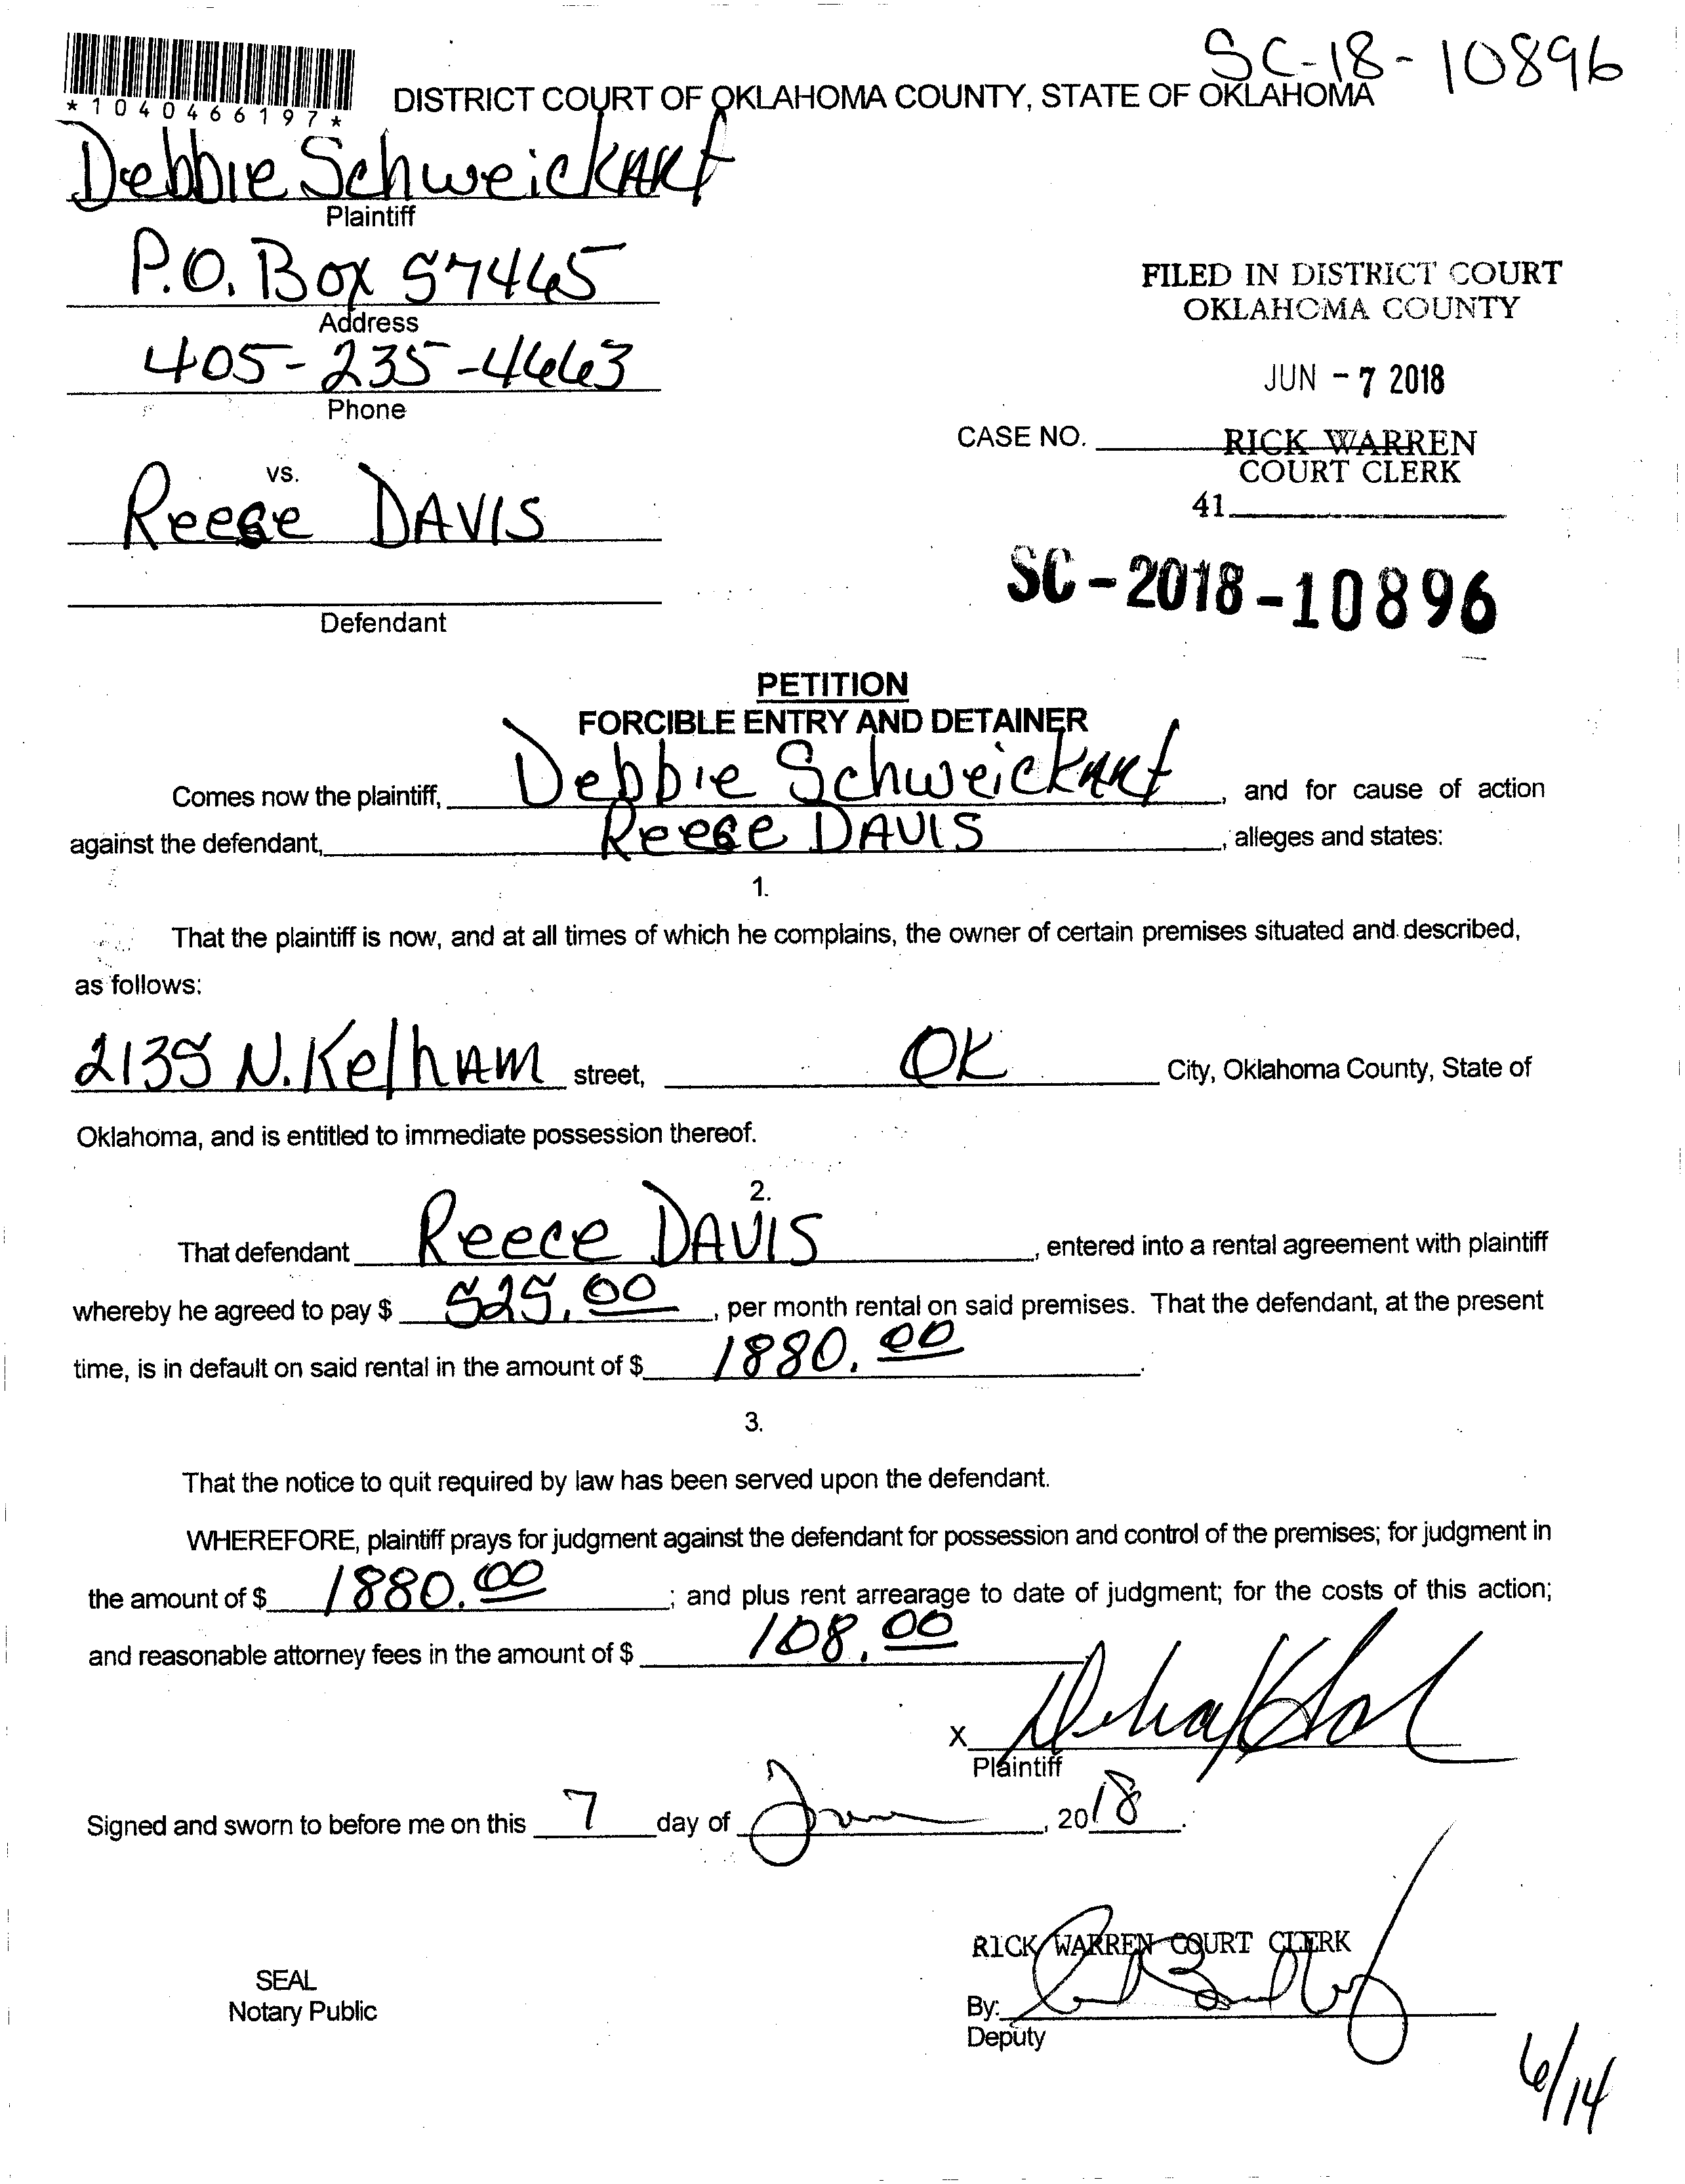 SC-18-10896
*1040466197*
DISTRICT COURT OF OKLAHOMA COUNTY, STATE OF OKLAHOMA
Debbie Schweickart
Plaintiff
P.O. Box 57445
Address
405-235-4663
Phone
FILED IN DISTRICT COURT
OKLAHOMA COUNTY
JUN - 7 2018
CASE NO.
RICK WARREN
COURT CLERK
41
vs.
Reece DAVIS
Defendant
SC-2018-10896
PETITION
FORCIBLE ENTRY AND DETAINER
Comes now the plaintiff, Debbie Schweickart, and for cause of action
against the defendant, Reece DAVIS, alleges and states:
1.
That the plaintiff is now, and at all times of which he complains, the owner of certain premises situated and described,
as follows:
2135 N. Kelham street, OK City, Oklahoma County, State of
Oklahoma, and is entitled to immediate possession thereof.
2.
That defendant Reece DAVIS, entered into a rental agreement with plaintiff
whereby he agreed to pay $ 525.00, per month rental on said premises. That the defendant, at the present
time, is in default on said rental in the amount of $ 1880.00.
3.
That the notice to quit required by law has been served upon the defendant.
WHEREFORE, plaintiff prays for judgment against the defendant for possession and control of the premises; for judgment in
the amount of $ 1880.00; and plus rent arrearage to date of judgment; for the costs of this action;
and reasonable attorney fees in the amount of $ 108.00
X
Plaintiff
Signed and sworn to before me on this 7 day of June, 2018.
RICK WARREN COURT CLERK
SEAL
Notary Public
By:
Deputy
6/14